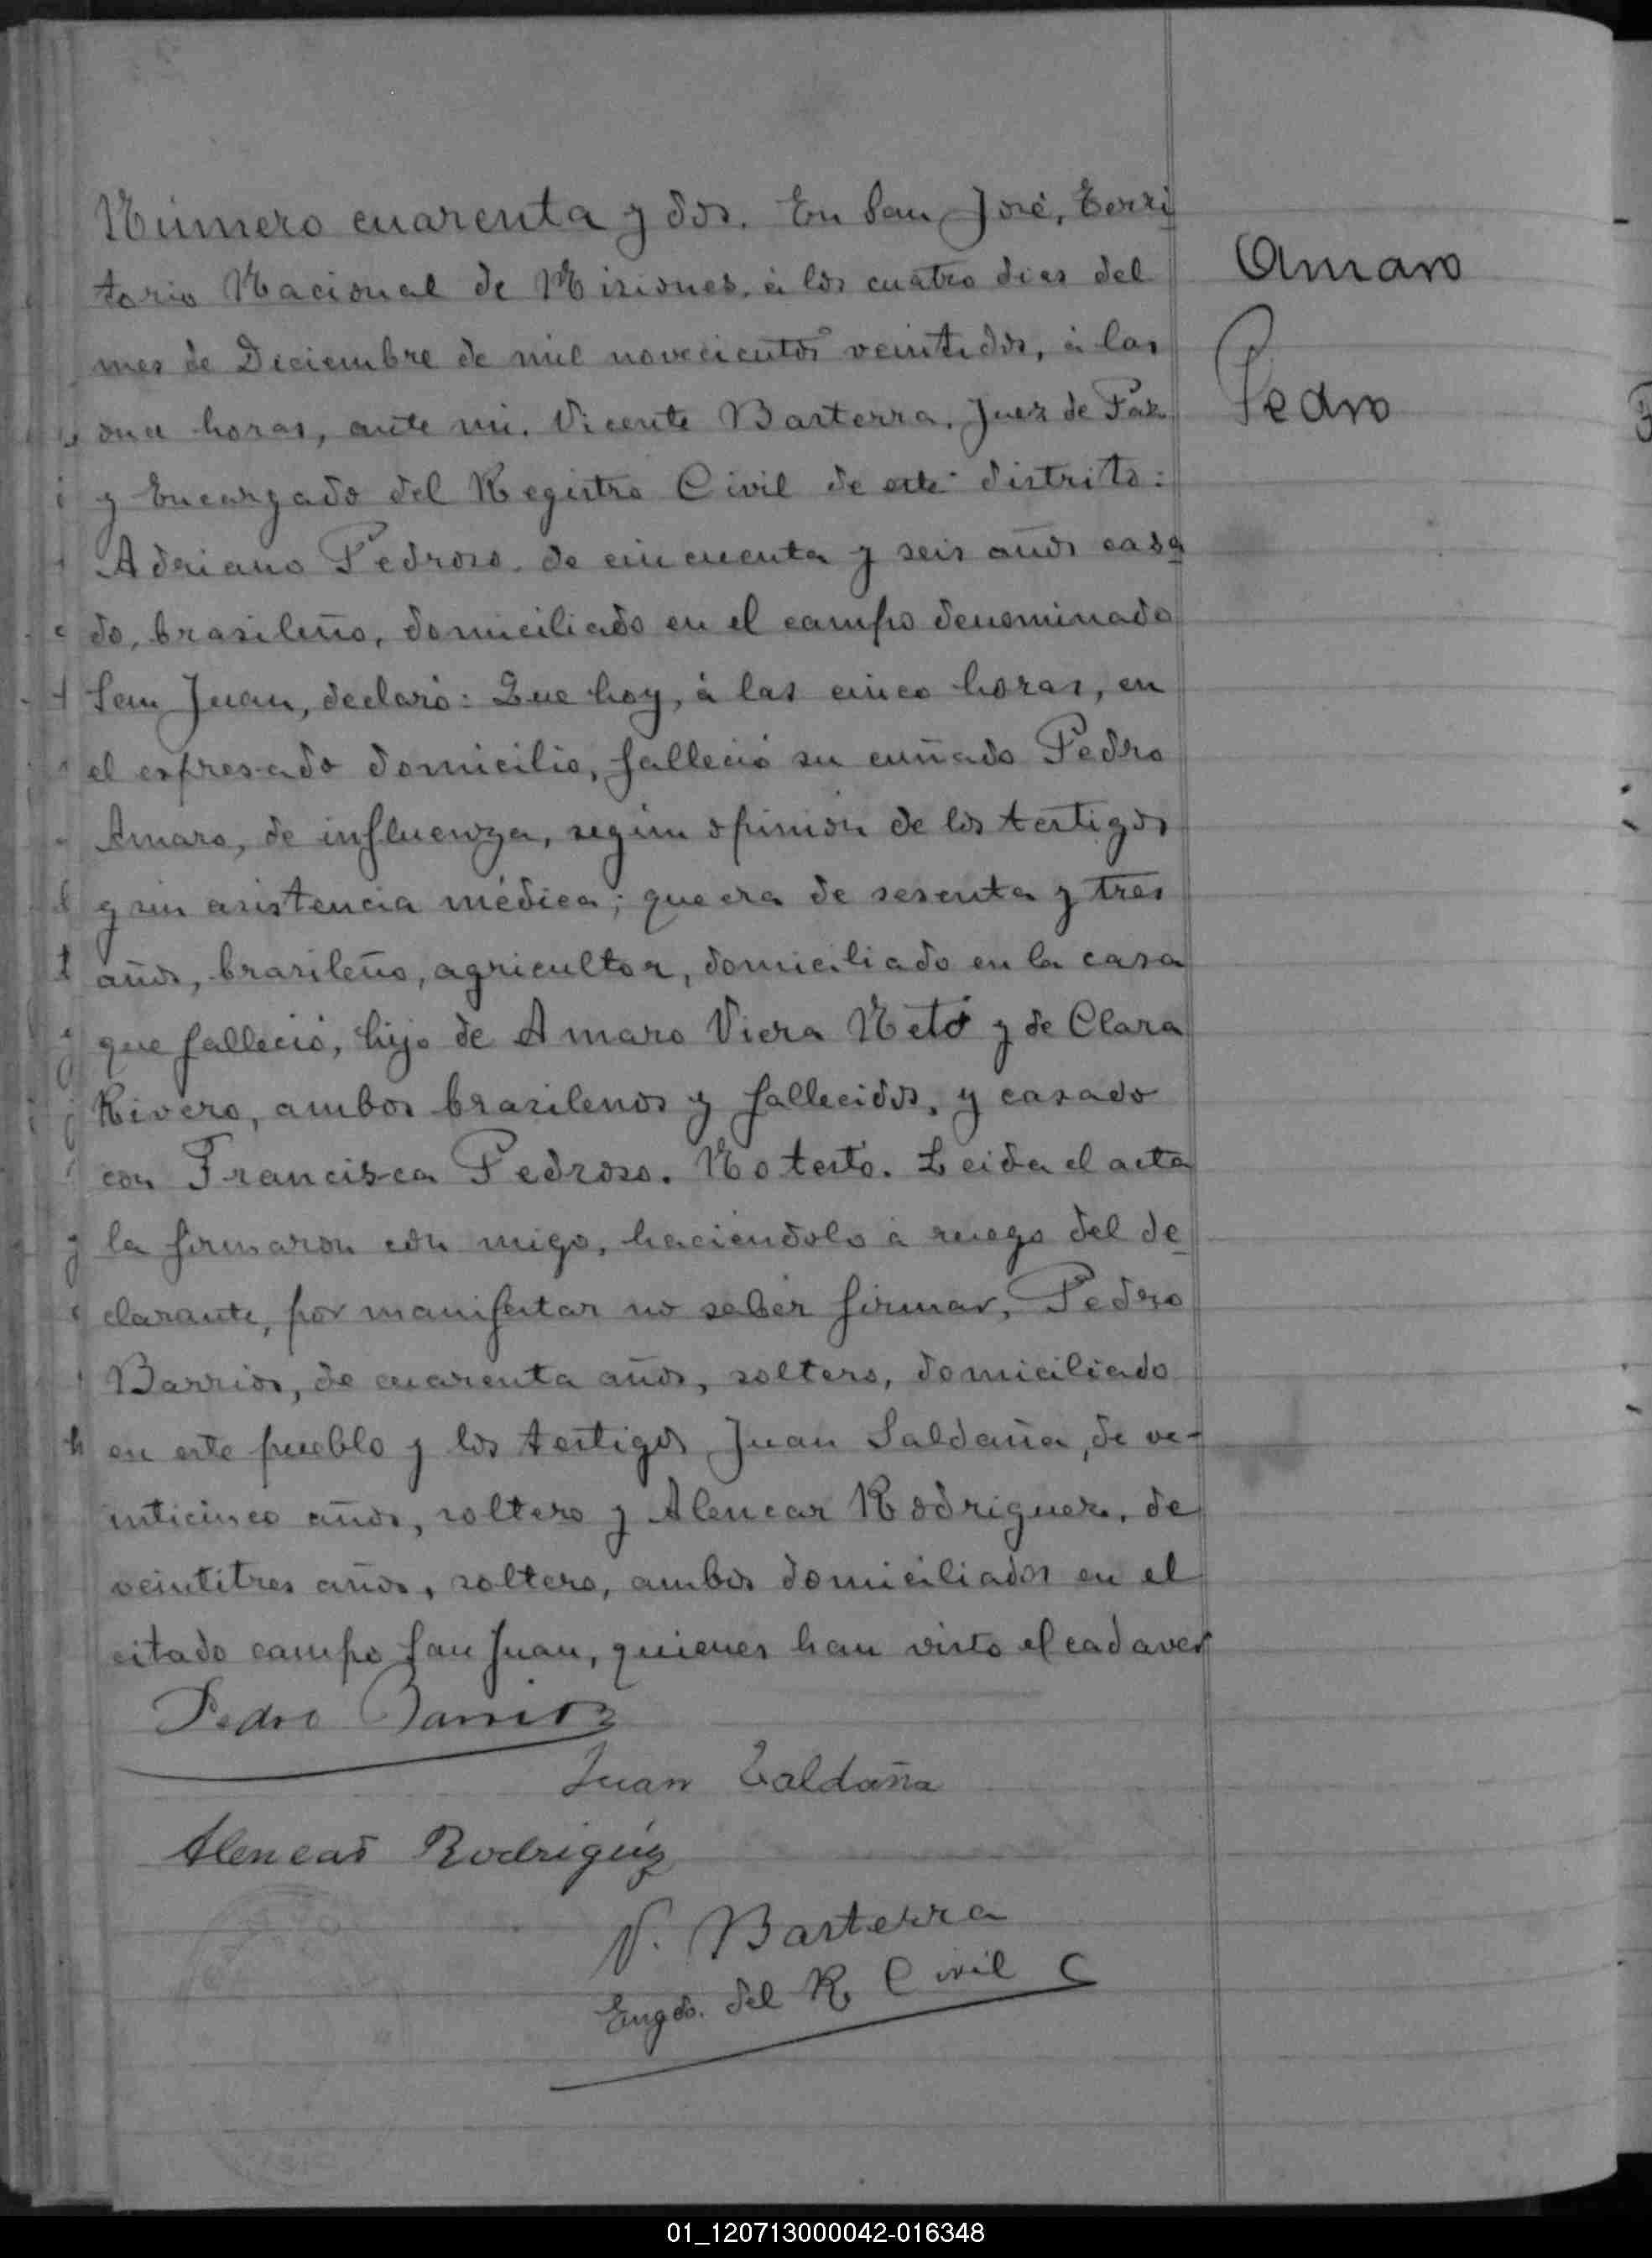 Número cuarenta y dos. En San José, Terri
torio Nacional de Misiones, á los cuatro dias del
mes de Diciembre de mil novecientos veintidós, á las
once horas, ante mi, Vicente Basterra, Juez de Paz
y Encargado del Registro Civil de este distrito:
Adriano Pedroso, de cincuenta y seis años casa
do, brasileño, domiciliado en el campo denominado
San Juan, declaró: Que hoy, á las cinco horas, en
el expresado domicilio, falleció su cuñado Pedro
Amaro, de influenza, según opinión de los testigos
y sin asistencia médica; que era de sesenta y tres
años, brasileño, agricultor, domiciliado en la casa
que falleció, hijo de Amaro Viera Netó y de Clara
Rivero, ambos brasilenos y fallecidos, y casado
con Francisca Pedroso. No testó. Leida el acta
la firmaron con migo, haciéndolo á ruego del de
clarante, por manifestar no saber firmar, Pedro
Barrios, de cuarenta años, soltero, domiciliado
en este pueblo y los testigos Juan Saldaña, de ve-
inticinco años, soltero y Alencar Rodriguez, de
veintitres años, soltero, ambos domiciliados en el
citado campo San Juan, quienes han visto el cadaver
Pedro Barrios
Juan Zaldaña
Alencar Rodrigúz
V. Basterra
Engdo. del R. Civil
Amaro
Pedro
01_120713000042-016348